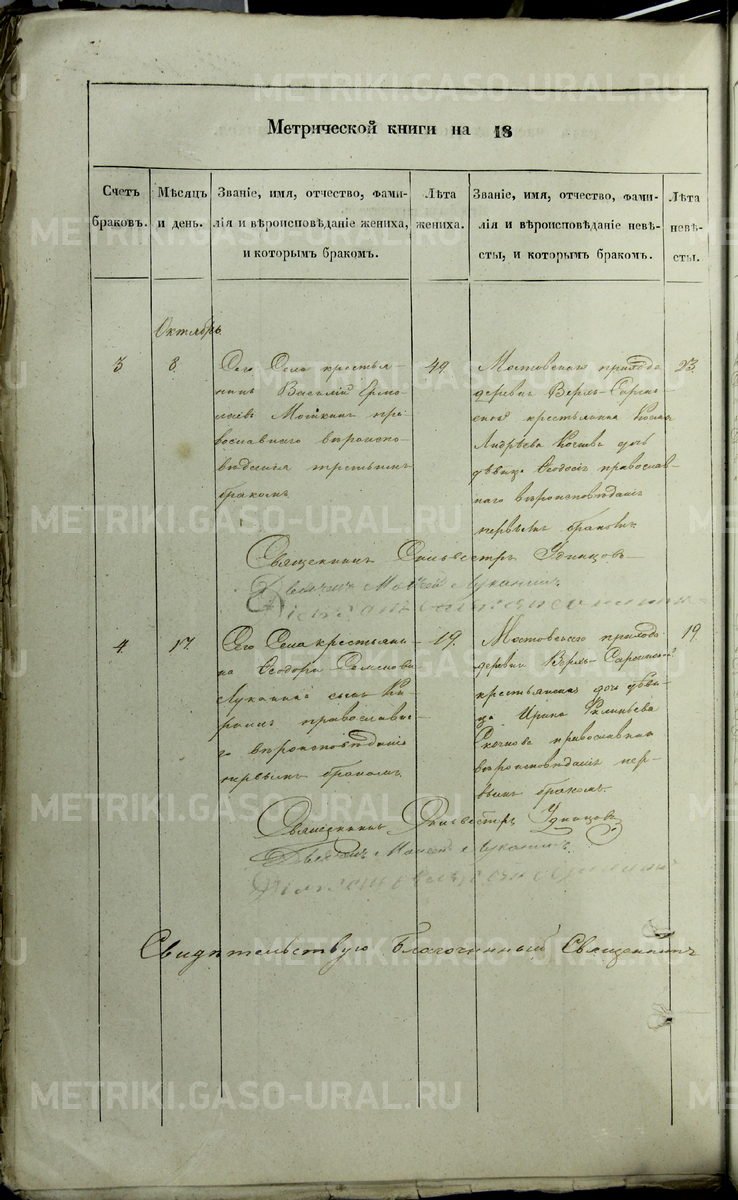 Метрической книги на 18
Счетъ браковъ.
Мѣсяцъ и день.
Званіе, имя, отчество, фами-
лія и вѣроисповѣданіе жениха,
и которымъ бракомъ.
Лѣта
жениха.
Званіе, имя, отчество, фами-
лія и вѣроисповѣданіе невѣ-
сты, и которымъ бракомъ.
Лѣта
невѣ-
сты.
Октябрь
3
8
Сего Села крестья-
нинъ Василій Ермо-
лаевъ Мошкинъ пра-
вославнаго вѣроиспо-
вѣданія третьимъ
бракомъ
49
Мостовскаго прихода
деревни Верхъ-Саргин-
ской крестьянина
Андрѣева дочь
дѣвица Ѳеодосія православ-
наго вѣроисповѣданія
первымъ бракомъ
23
Священникъ Сильвестръ Удинцовъ
Дьячекъ Луканинъ
4
17
Сего Села крестьяни-
на Ѳеодора Семенова
Луканина сынъ Ки-
рилъ православна-
го вѣроисповѣданія
первымъ бракомъ
19
Мостовскаго прихода
деревни Верхъ-Саргинской
крестьянская дочь дѣви-
ца Ирина Филипьева
православнаго
вѣроисповѣданія пер-
вымъ бракомъ.
19
Священникъ Сильвестръ Удинцовъ
Дьячекъ Луканинъ
Свидѣтельствую Благочинный Священникъ
METRIKI.GASO-URAL.RU